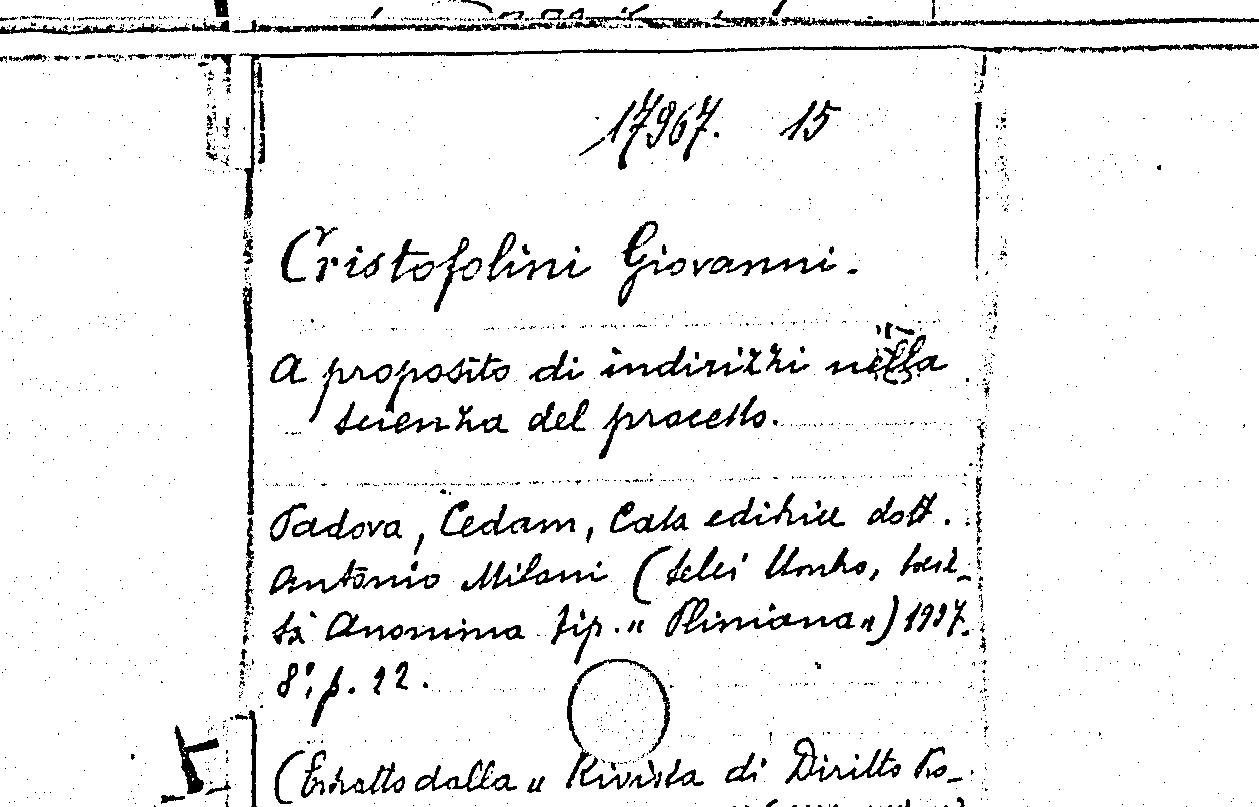 17967. 15
Cristofolini Giovanni.
A proposito di indirizzi nella
scienza del processo.
Padova, Cedam, Casa editrice dott.
Antonio Milani (Selci Umbro, Socie_
tà Anonima tip. „ Pliniana „) 1937.
8°, p. 22.
(Estratto dalla „ Rivista di Diritto Pro_